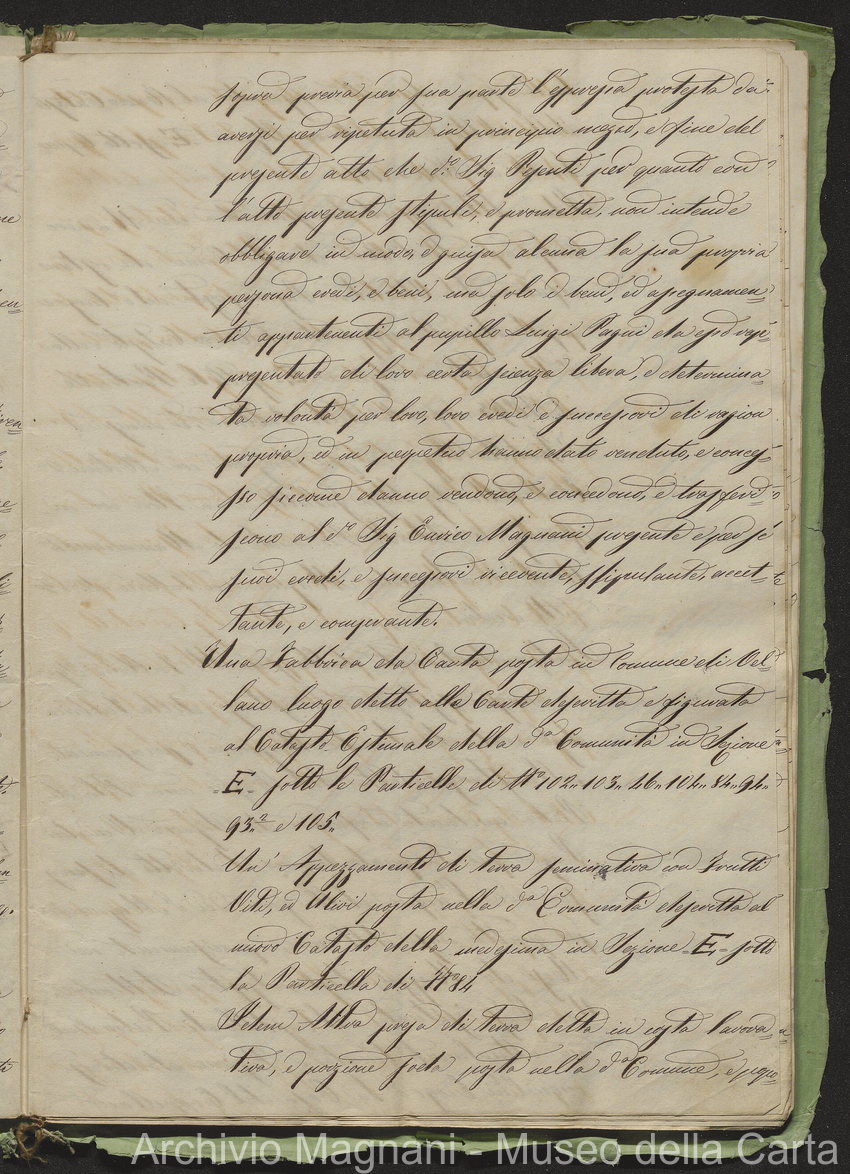 sopra previa per sua parte l'espressa protesta da
aversi per ripetuta in principio mezzo, e fine del
presente atto che do. Sig Pesenti per quanto con
l'atto presente stipuli, e prometta, non intende
obbligare in modo, e guisa alcuna la sua propria
persona eredi, e beni, ma solo i beni, ed assegnamen=
ti appartenenti al pupillo Luigi Pagni da esso rap=
presentato di loro certa scienza libera, e determina=
ta volontà per loro, loro eredi e successori di ragion
propria, ed in perpetuo hanno dato venduto, e conces=
so siccome danno vendono, e concedono, e trasferi=
scono al do Sig Enrico Magnani presente e per se
suoi eredi, e successori ricevente, stipulante, accet=
tante, e comprante.
Una Fabbrica da Carta posta in Comune di Vel=
lano luogo detto alle Carte descritta e figurata
al Catasto Estimale della da Comunità in Sezione
=E= sotto le Particelle di No 102,, 103,, 46,, 104,, 84,, 94,,
93,,2 e 105,,
Un' Appezzamento di terra seminativa con Frutti
Viti, ed Ulivi posta nella da Comunità descritta al
nuovo Catasto della medesima in Sezione =E= sotto
la Particella di No 84
Altra presa di terra detta in costa lavora=
tiva, e porzione soda posta nella da Comune, e
Archivio Magnani - Museo della Carta